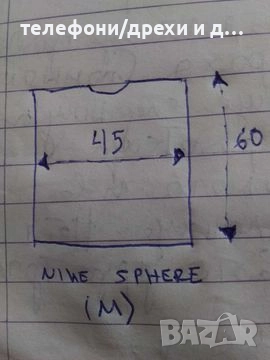 телефони/дрехи и д...
45
60
NIKE SPHERE
(M)
bazar